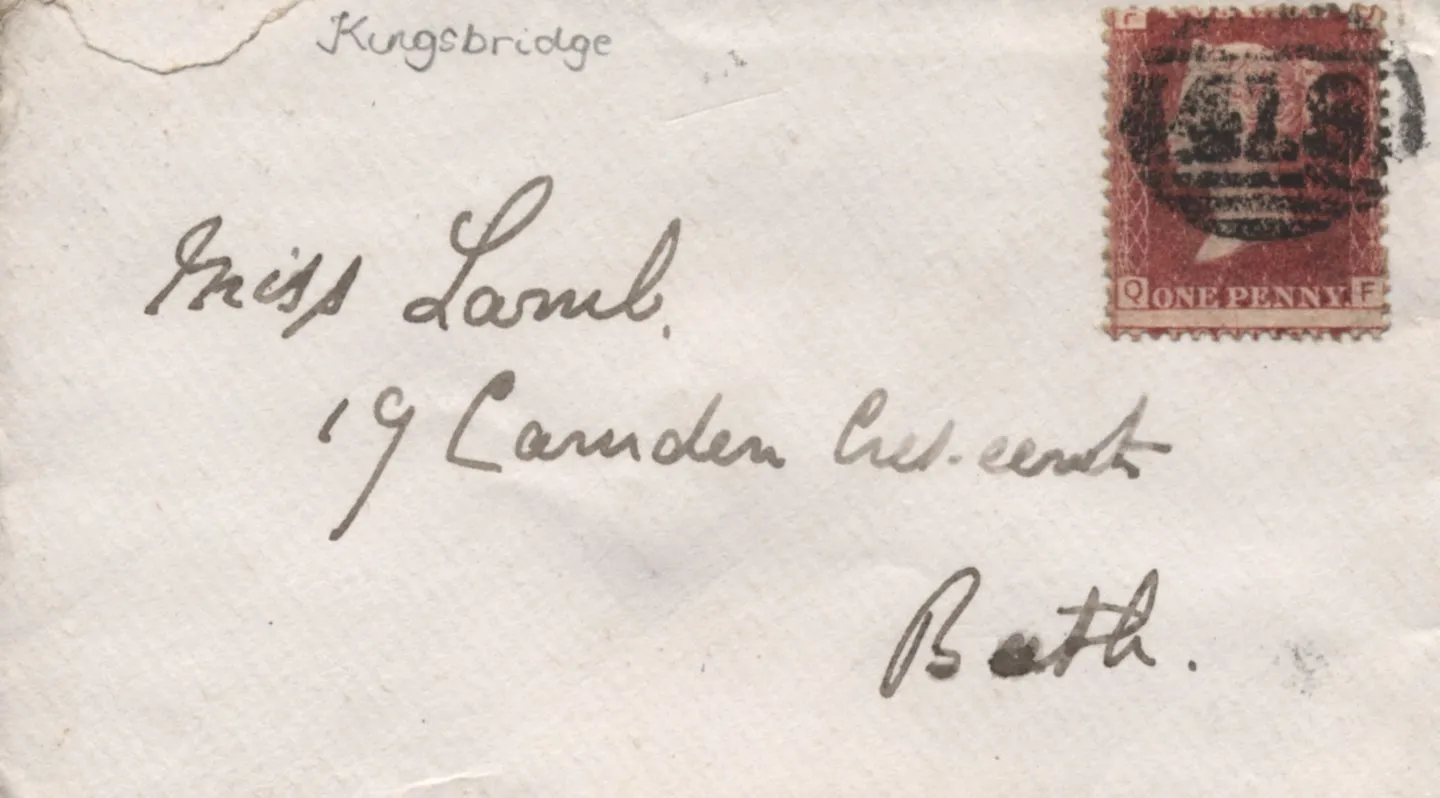 Kingsbridge
Miss Lamb.
19 Camden Crescent
Bath.
Q ONE PENNY. F